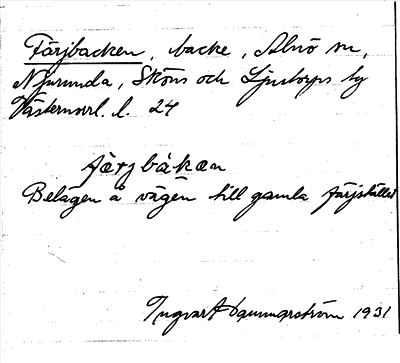 Färjbacken, backe, Alnö sn,
Njurunda, Sköns och Ljustorps tg
Västernorrl. l. 24
färjbàkan
Belägen å vägen till gamla färjstället
Ingvar Hammarström 1931